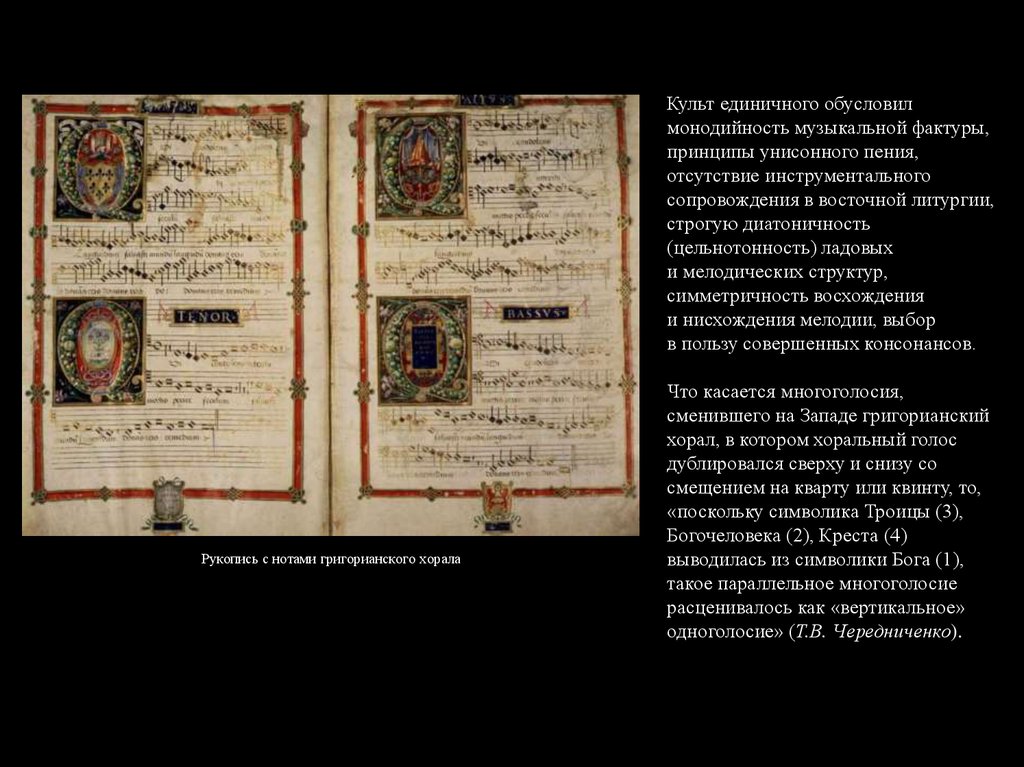 TENOR
BASSVS
Рукопись с нотами григорианского хорала
Культ единичного обусловил
монодийность музыкальной фактуры,
принципы унисонного пения,
отсутствие инструментального
сопровождения в восточной литургии,
строгую диатоничность
(цельнотонность) ладовых
и мелодических структур,
симметричность восхождения
и нисхождения мелодии, выбор
в пользу совершенных консонансов.
Что касается многоголосия,
сменившего на Западе григорианский
хорал, в котором хоральный голос
дублировался сверху и снизу со
смещением на кварту или квинту, то,
«поскольку символика Троицы (3),
Богочеловека (2), Креста (4)
выводилась из символики Бога (1),
такое параллельное многоголосие
расценивалось как «вертикальное»
одноголосие» (Т.В. Чередниченко).